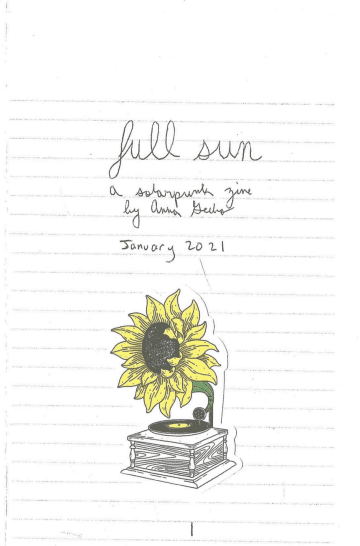 full sun
a solarpunk zine
by Anna
January 2021
1